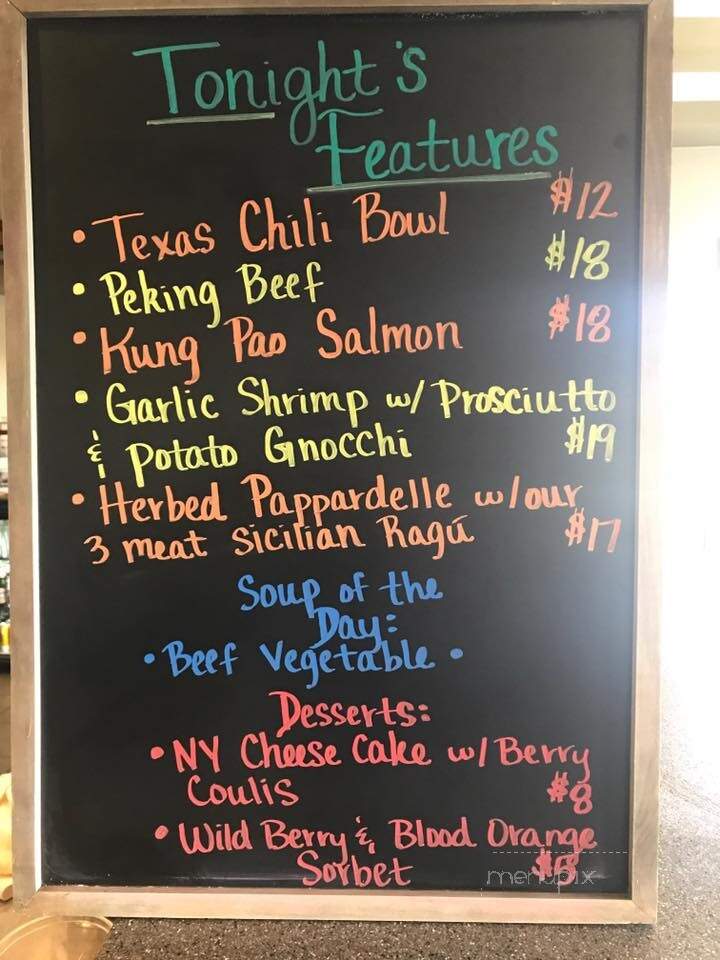 Tonight's
Features
• Texas Chili Bowl $12
• Peking Beef $18
• Kung Pao Salmon $18
• Garlic Shrimp w/ Prosciutto
& Potato Gnocchi $19
• Herbed Pappardelle w/our
3 meat Sicilian Ragú $17
Soup of the
Day:
• Beef Vegetable •
Desserts:
• NY Cheese Cake w/ Berry
Coulis $8
• Wild Berry & Blood Orange
Sorbet
menupix